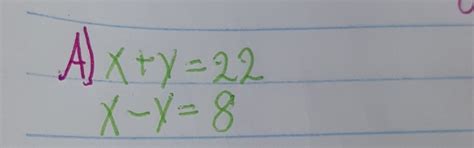 A) x+y=22
x-y=8